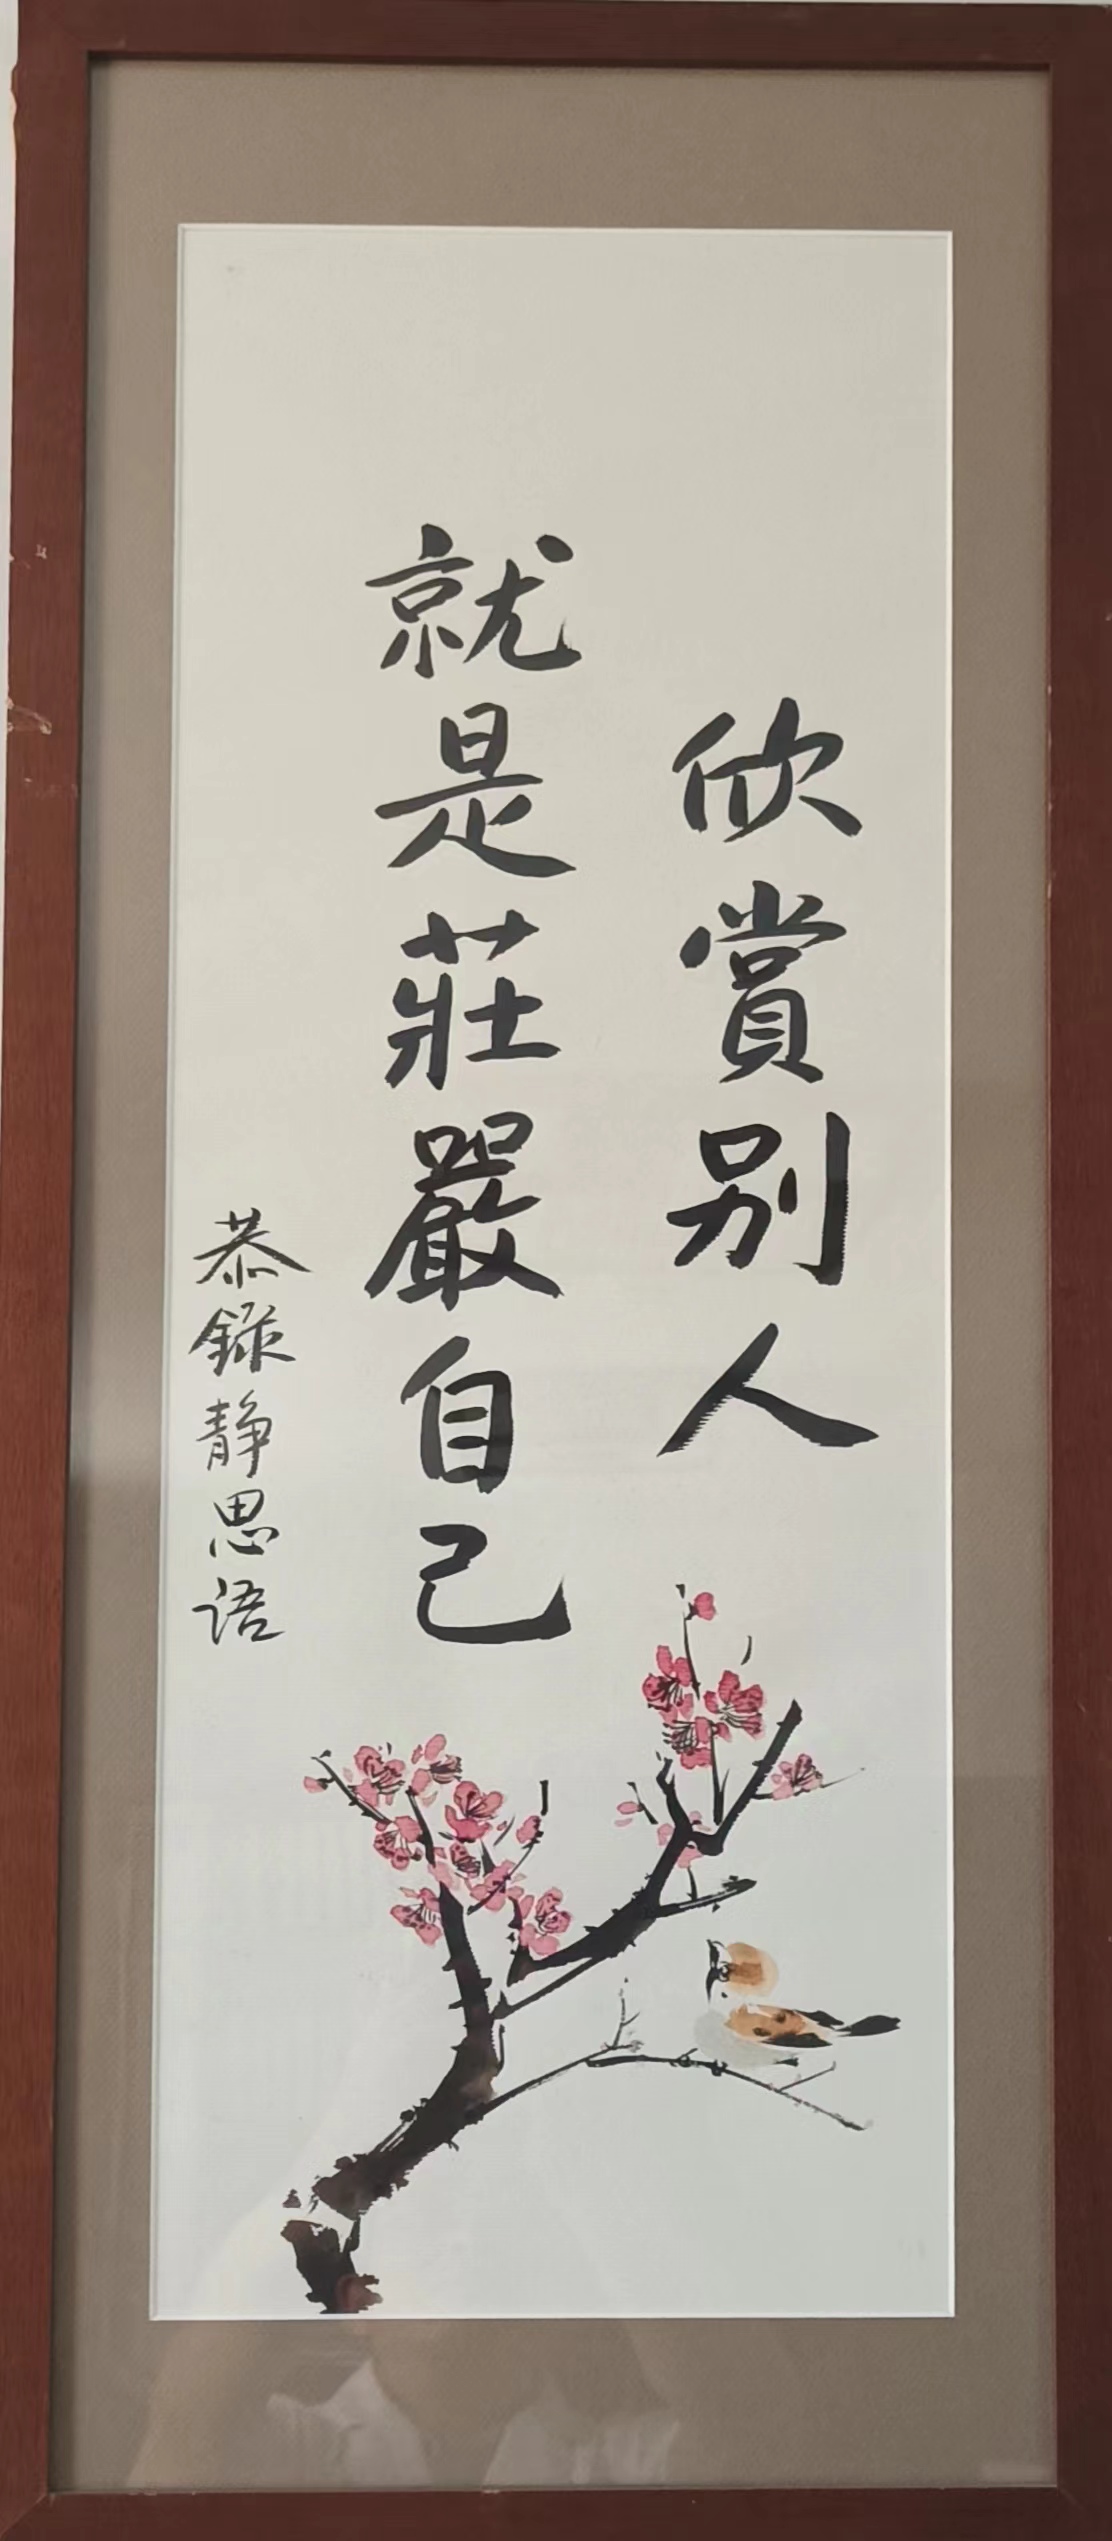 欣賞别人
就是莊嚴自己
恭錄静思语